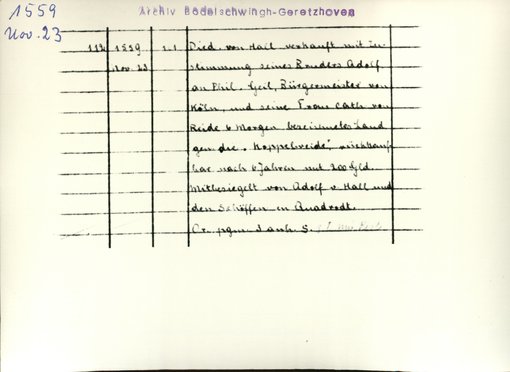 1559
Nov. 23
Archiv Bodelschwingh-Geretzhoven
112 1559 1.1 Died. von Hall verkauft mit Zu-
Nov. 23 stimmung seines Bruders Adolf
an Phil. Geil, Bürgermeister von
Köln, und seine Frau Cath. von
Reide 6 Morgen Land
gen. die „Koppelweide" rückkauf
bar nach 6 Jahren mit 200 Gld.
Mitbesiegelt von Adolf v. Hall und
den Schöffen in Quadrodt.
Or. pgm. S.